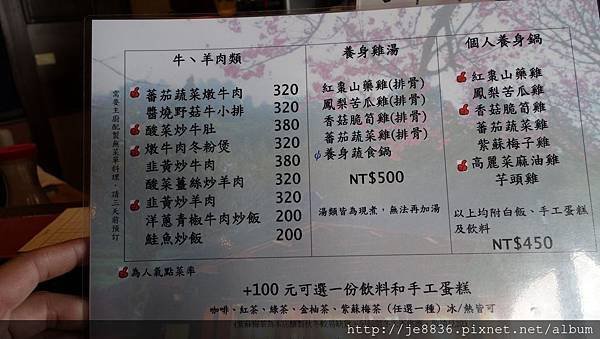 牛、羊肉類
番茄蔬菜燉牛肉 320
醬燒野菇牛小排 320
酸菜炒牛肚 380
燉牛肉冬粉煲 320
韭黃炒牛肉 380
酸菜薑絲炒羊肉 320
韭黃炒羊肉 320
洋蔥青椒牛肉炒飯 200
鮭魚炒飯 200
需要主廚配製無菜單料理,請三天前預訂
為人氣點菜率
養身雞湯
紅棗山藥雞(排骨)
鳳梨苦瓜雞(排骨)
香菇脆筍雞(排骨)
番茄蔬菜雞(排骨)
養身蔬食鍋
NT$500
湯類皆為現煮,無法再加湯
個人養身鍋
紅棗山藥雞
鳳梨苦瓜雞
香菇脆筍雞
番茄蔬菜雞
紫蘇梅子雞
高麗菜麻油雞
芋頭雞
以上均附白飯、手工蛋糕
及飲料
NT$450
+100 元可選一份飲料和手工蛋糕
咖啡、紅茶、綠茶、金柚茶、紫蘇梅茶(任選一種)冰/熱皆可
http://je8836.pixnet.net/album